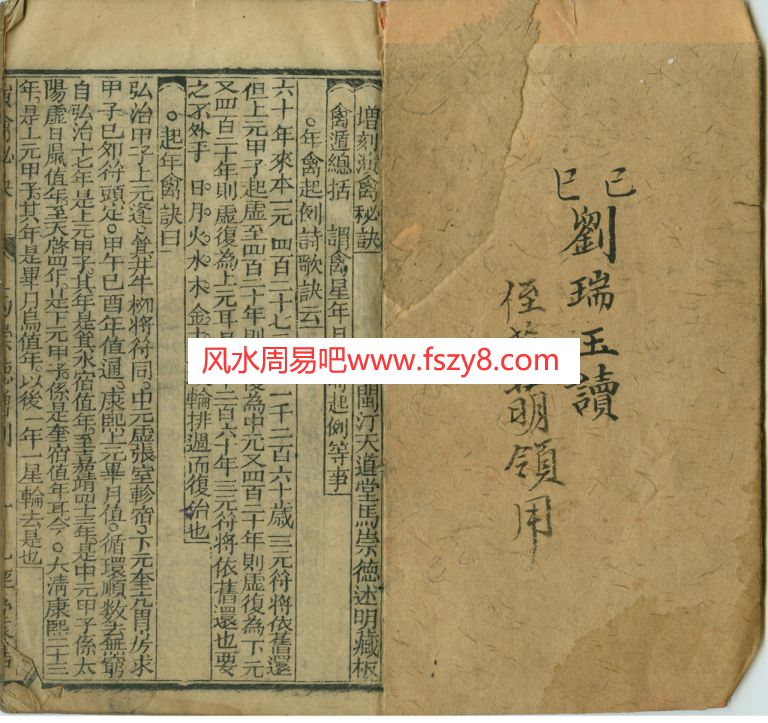 己巳
劉瑞玉讀
侄
明領用
增刻演禽秘訣
閩汀天道堂馬崇德述明藏板
禽遁總括
謂禽星年月
起例等事
年禽起例詩歌訣云
六十年來本一元
四百二十七
一千二百六十歲
三元符將依舊還
但上元甲子起虛至四百二十年則
復為中元又四百二十年則虛復為下元
又四百二十年則虛復為上元耳
二百六十年三元符將依舊還也要
之不外乎
日月火水木金土
輪排過而復治也
起年禽訣曰
弘治甲子上元逢箕井牛柳將符同中元虛張室軫宿下元奎亢胃房求
甲子巳卯符頭定甲午巳酉年值通康熙上元畢月值循環順數去無窮
自弘治十七年是上元甲子其年是箕水宿值年至嘉靖四十三年是中元甲子係太
陽虛日鼠值年至天啓四年是上元甲子係是奎宿值年耳今大清康熙二十三
年是上元甲子其年是畢月烏值年以後一年一星輪去是也
风水周易吧www.fszy8.com